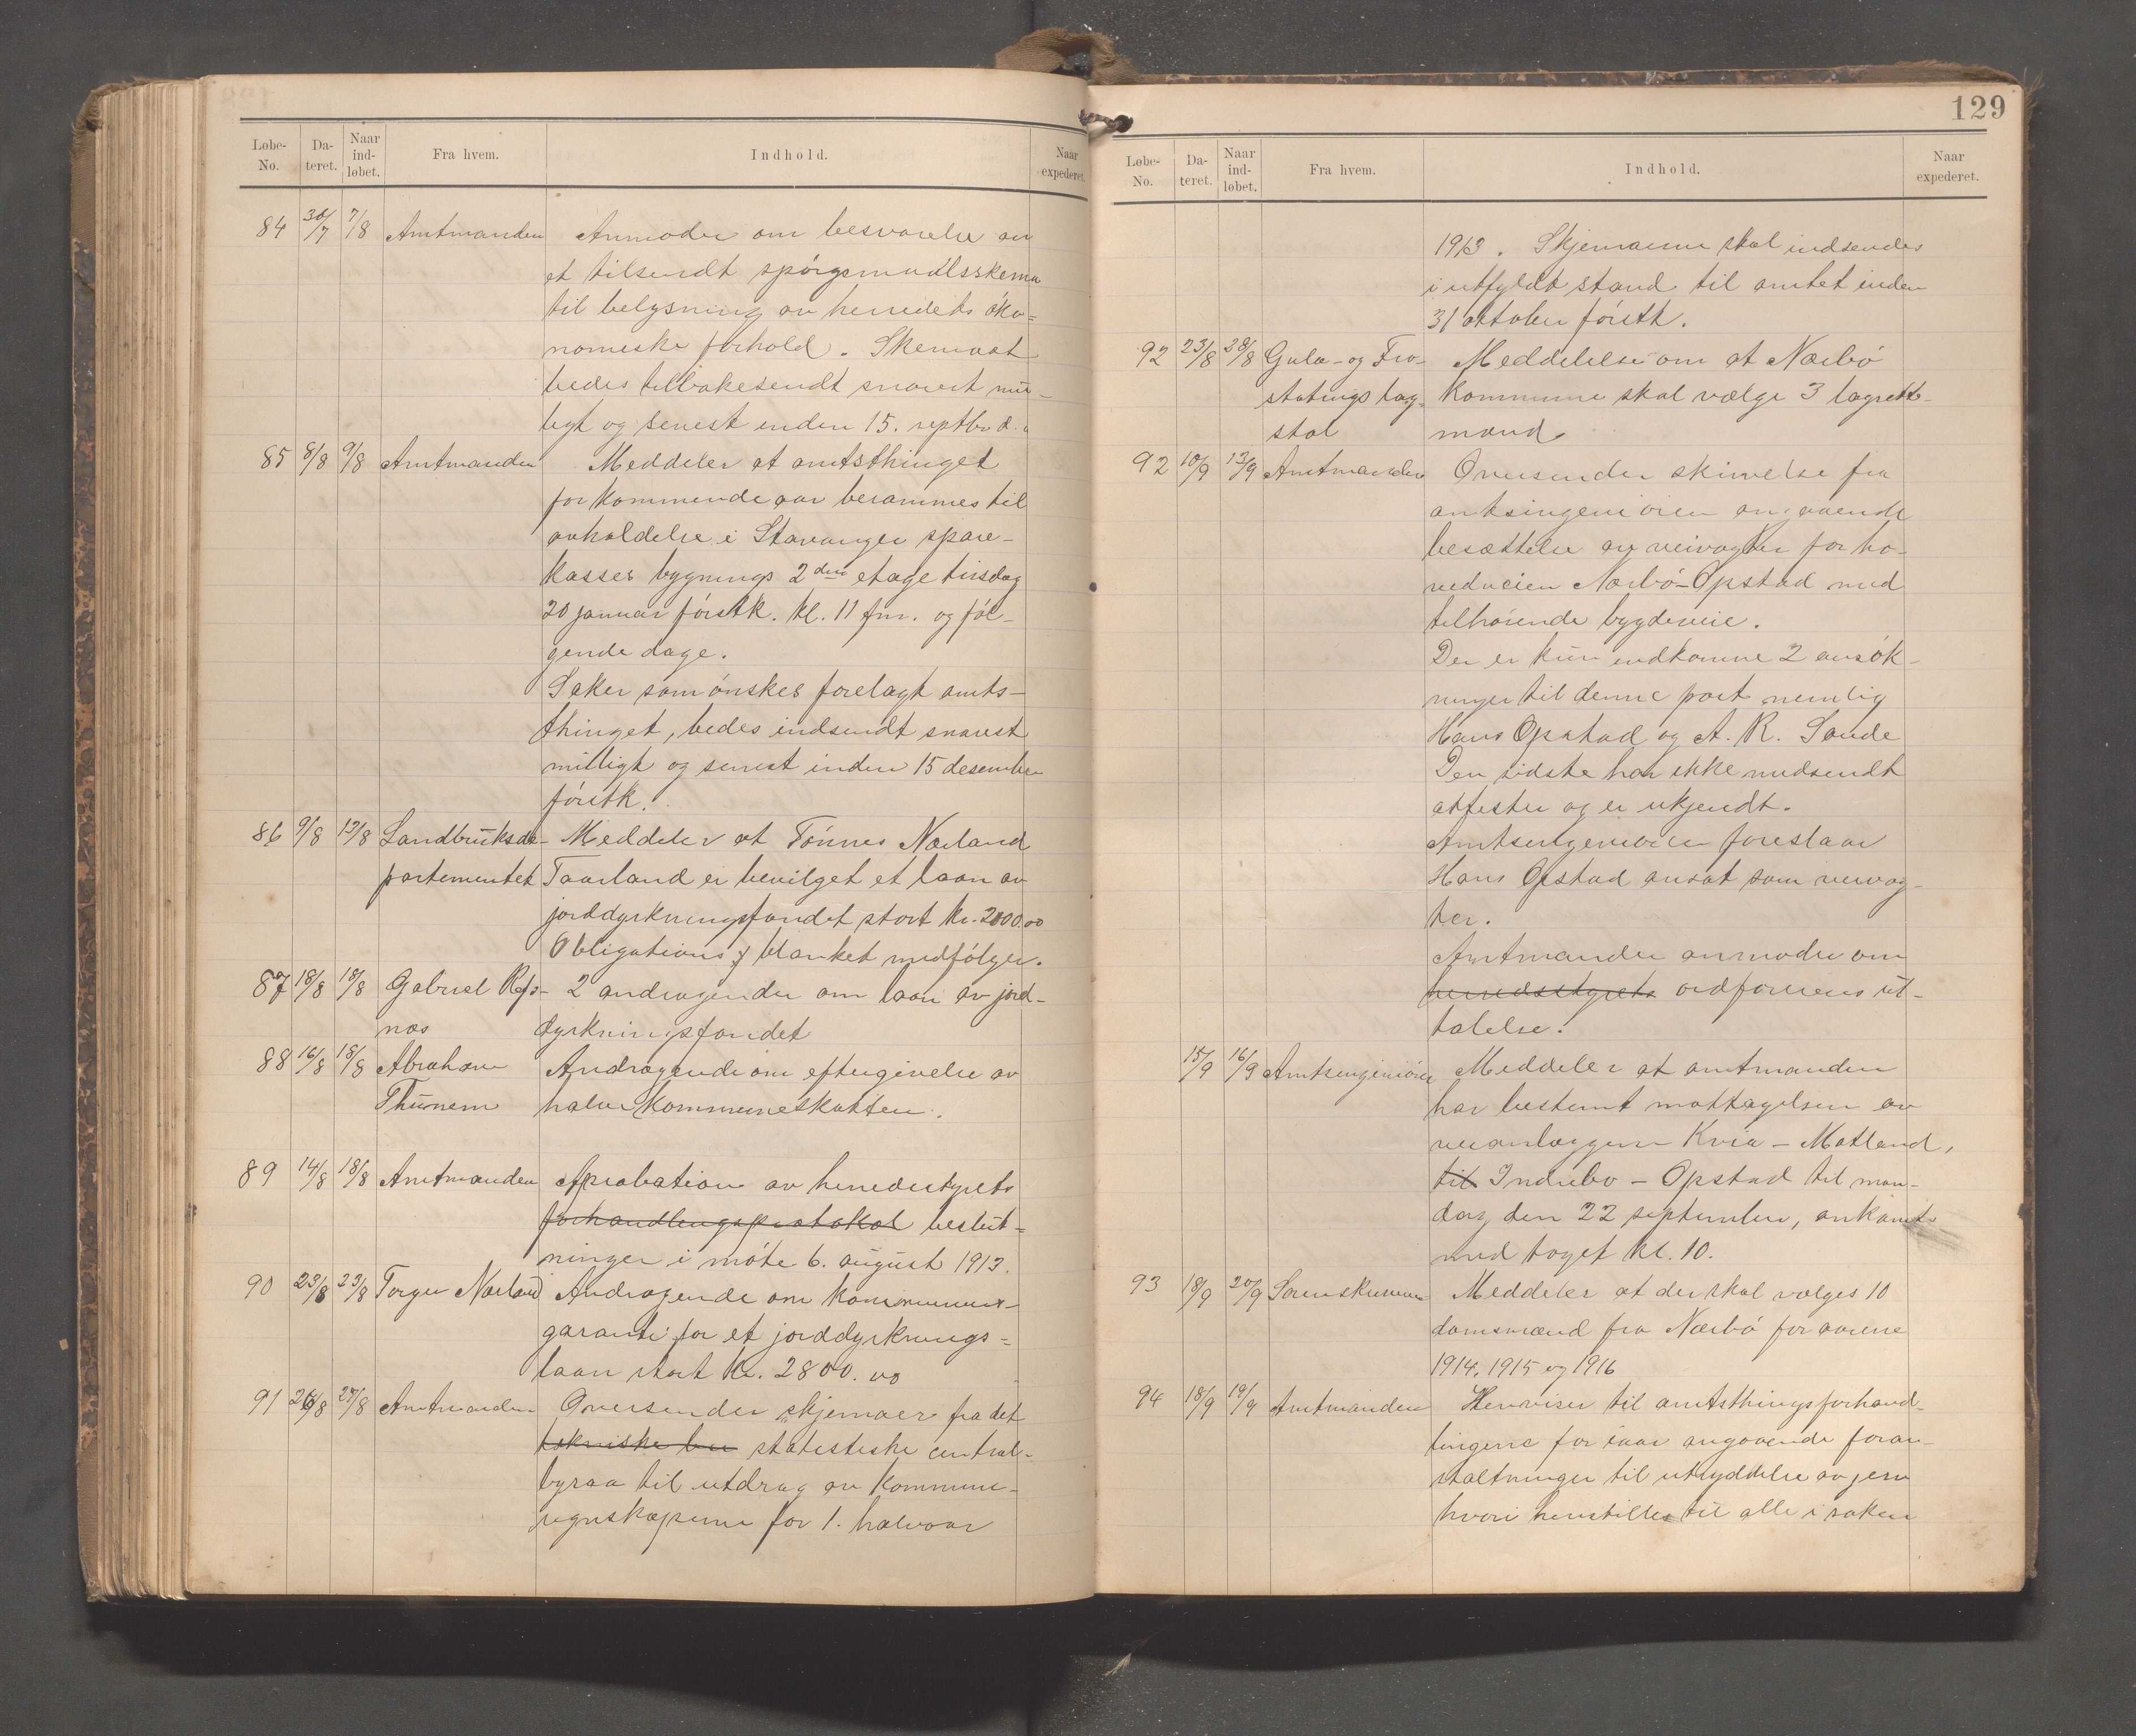 Løbe-No. Da-teret. Naar ind-løbet. Fra hvem. Indhold. Naar expederet.
84 30/7 7/8 Amtmanden Anmoder om besvarelse av
et tilsendt spörgsmaalsskema
til belysning av herredets öko=
nomiske forhold. Skemaat
bedes tilbakesendt snarest mu-
ligt og senest inden 15. septbr d. a
85 8/8 9/8 Amtmanden Meddeler at amtsthinget
for kommende aar berammes til
avholdelse i Stavanger spare-
kasses bygnings 2den etage tirsdag
20 januar förstk. kl. 11 fm. og föl-
gende dage.
Saker som önskes forelagt amts-
thinget, bedes indsendt snarest
muligt og senest inden 15 desember
förstk.
86 9/8 13/8 Landbruksde- Meddeler at Tönnes Nærland
partementet Taarland er bevilget et laan av
jorddyrkningsfondet stort kr. 2000.00
Obligations blanket medfölger.
87 18/8 18/8 Gabriel Refs- 2 andragender om laan av jord-
nes dyrkningsfondet
88 16/8 18/8 Abraham Andragende om eftergivelse av
Thunem halve kommuneskatten.
89 14/8 18/8 Amtmanden Aprobation av herredsstyrets
forhandlingsprotokol beslut-
ninger i möte 6. august 1913.
90 23/8 23/8 Torger Nærland Andragende om kommune-
garanti for et jorddyrknings=
laan stort kr. 2800.00
91 26/8 27/8 Amtmanden Oversender skjemaer fra det
tekniske bu statistiske central-
byraa til utdrag av kommune-
regnskaperne for 1. halvaar
129
Løbe-No. Da-teret. Naar ind-løbet. Fra hvem. Indhold. Naar expederet.
1913. Skjemaerne skal indsendes
i utfyldt stand til amtet inden
31 oktober förstk.
92 23/8 28/8 Gula- og Fro- Meddelelse om at Nærbö
statings lag- kommune skal vælge 3 lagrett-
stol mænd
92 10/9 13/9 Amtmanden Oversender skrivelse fra
amtsingeniören angaaende
besættelse av veivogter for ho-
vedveien Nærbö-Opstad med
tilhörende bygdeveie.
Der er kun indkomne 2 ansök-
ninger til denne post nemlig
Hans Opstad og A. R. Sande
Den sidste har ikke medsendt
attester og er ukjendt.
Amtsingeniören foreslaar
Hans Opstad ansat som veivog-
ter.
Amtmanden anmoder om
herredsstyrets ordförerens ut-
talelse.
15/9 16/9 Amtsingeniören Meddeler at amtmanden
har bestemt mottagelsen av
veianlæggene Kvia - Motland,
til Indrebo - Opstad til man-
dag den 22 september, ankomst
med toget kl. 10.
93 18/9 20/9 Sorenskriveren Meddeler at der skal vælges 10
domsmænd fra Nærbö for aarene
1914, 1915 og 1916
94 18/9 19/9 Amtmanden Henviser til amtsthingsforhand-
lingene for iaar angaaende foran-
staltninger til utryddelse av jerv
hvori henstilles til alle i saken